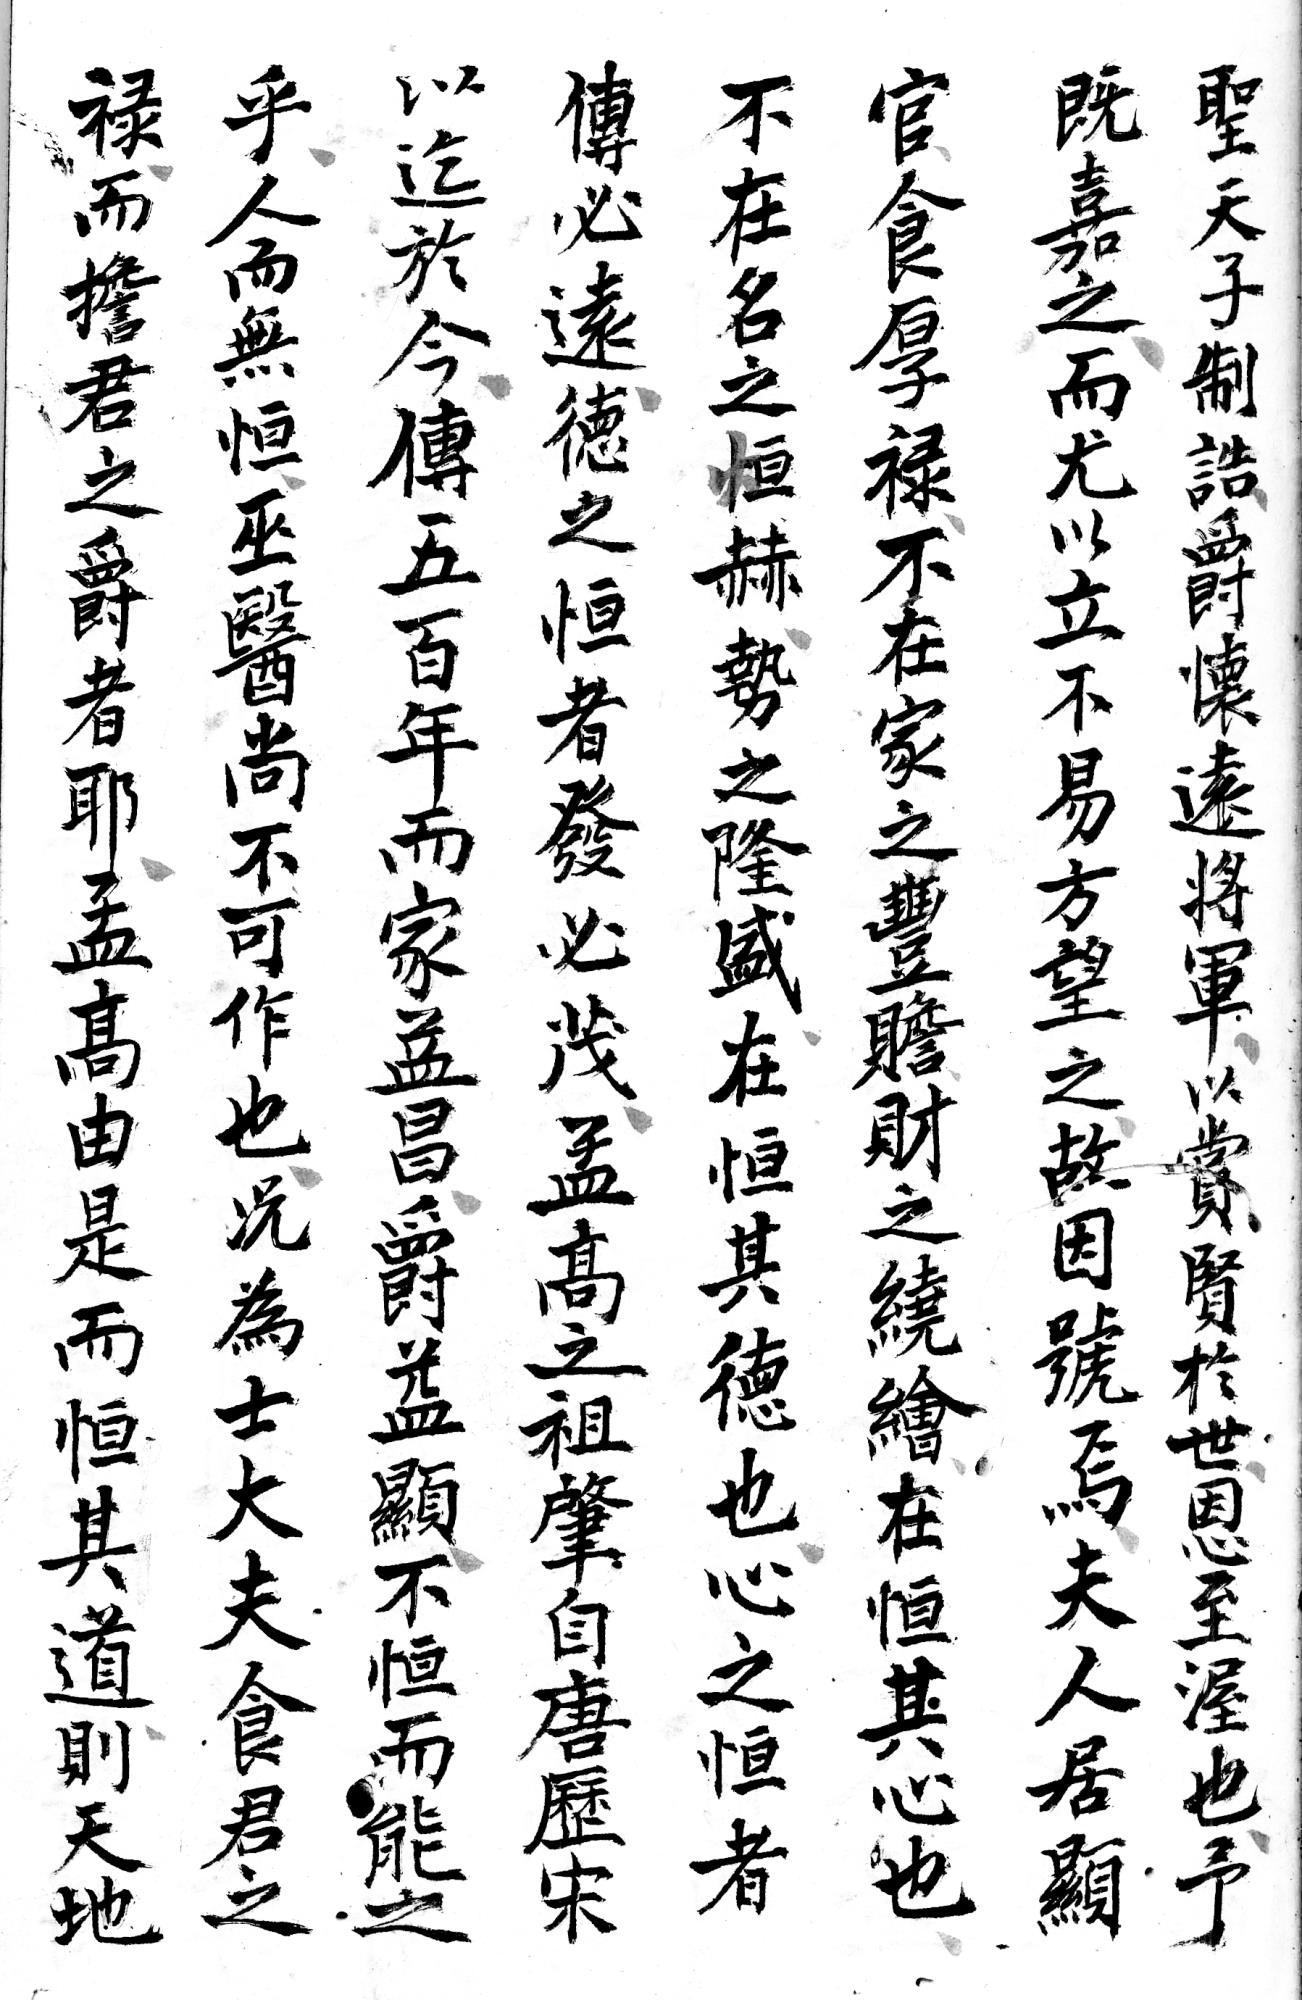 聖天子制誥爵懷遠將軍以賞賢於世恩至渥也予
既嘉之而尤以立不易方望之故因號焉夫人居顯
官食厚禄不在家之豐贍財之繞繪在恒其心也
不在名之恒赫勢之隆盛在恒其德也心之恒者
傳必遠德之恒者發必茂孟高之祖肇自唐歷宋
以迄於今傳五百年而家益昌爵益顯不恒而能之
乎人而無恒巫醫尚不可作也况為士大夫食君之
禄而擔君之爵者耶孟高由是而恒其道則天地